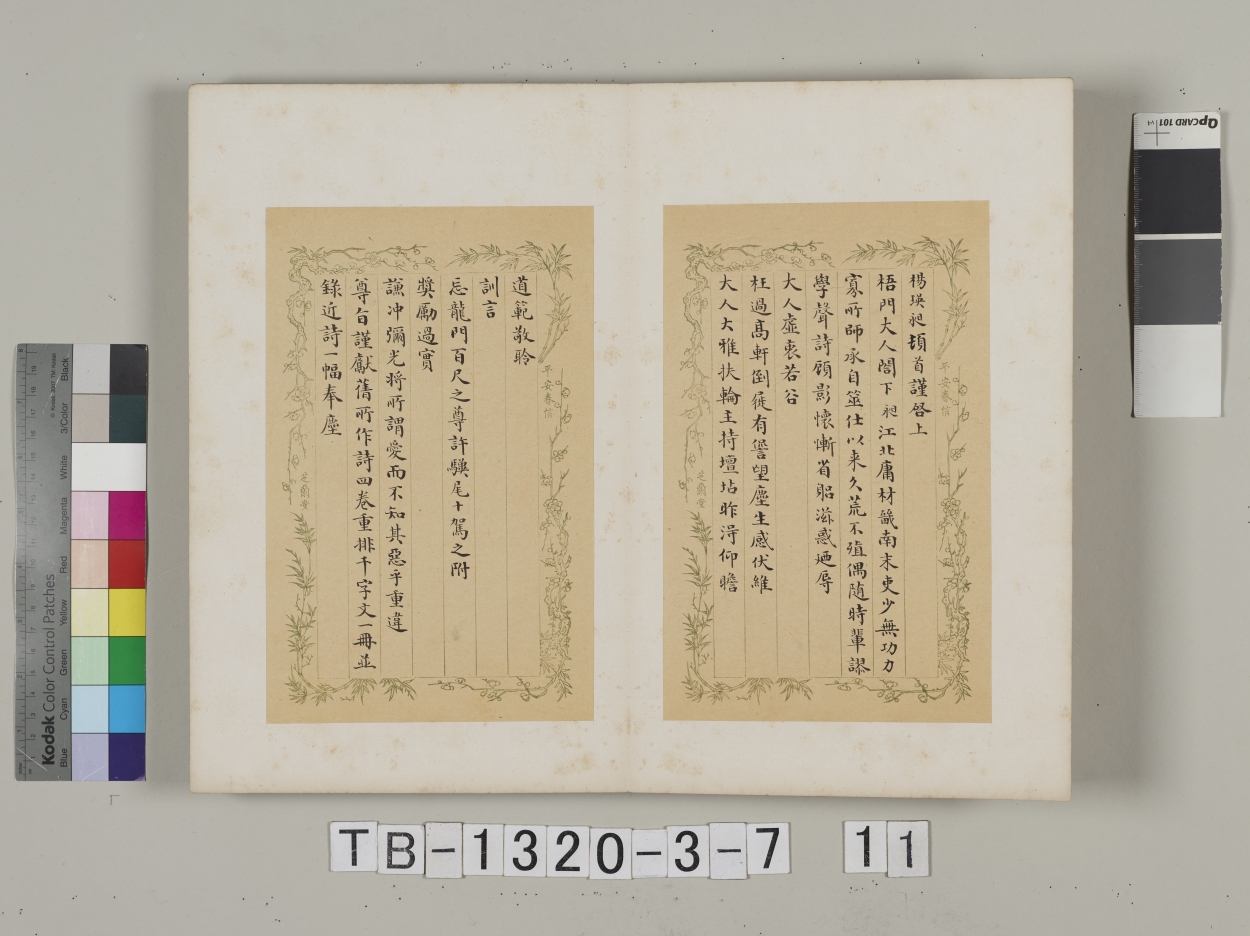 楊瑛昶頓首謹啓上
梧門大人閣下昶江北庸材畿南末吏少無功力
寡所師承自筮仕以来久荒不殖偶随時輩謬
學聲詩顧影懷慚省躳滋惑廼辱
大人虚衷若谷
枉過髙軒倒屣有譽望塵生感伏維
大人大雅扶輪主持壇坫昨淂仰瞻
平安春信
芝蘭堂
道範敬聆
訓言
忘龍門百尺之尊許驥尾十駕之附
獎厲過實
謙冲彌光将所謂愛而不知其惡乎重違
尊㫖謹獻舊所作詩四卷重排千字文一冊並
錄近詩一幅奉塵
平安春信
芝蘭堂
QpCARD 101
Kodak Color Control Patches
Blue Cyan Green Yellow Red Magenta White 3/Color Black
TB-1320-3-7 11